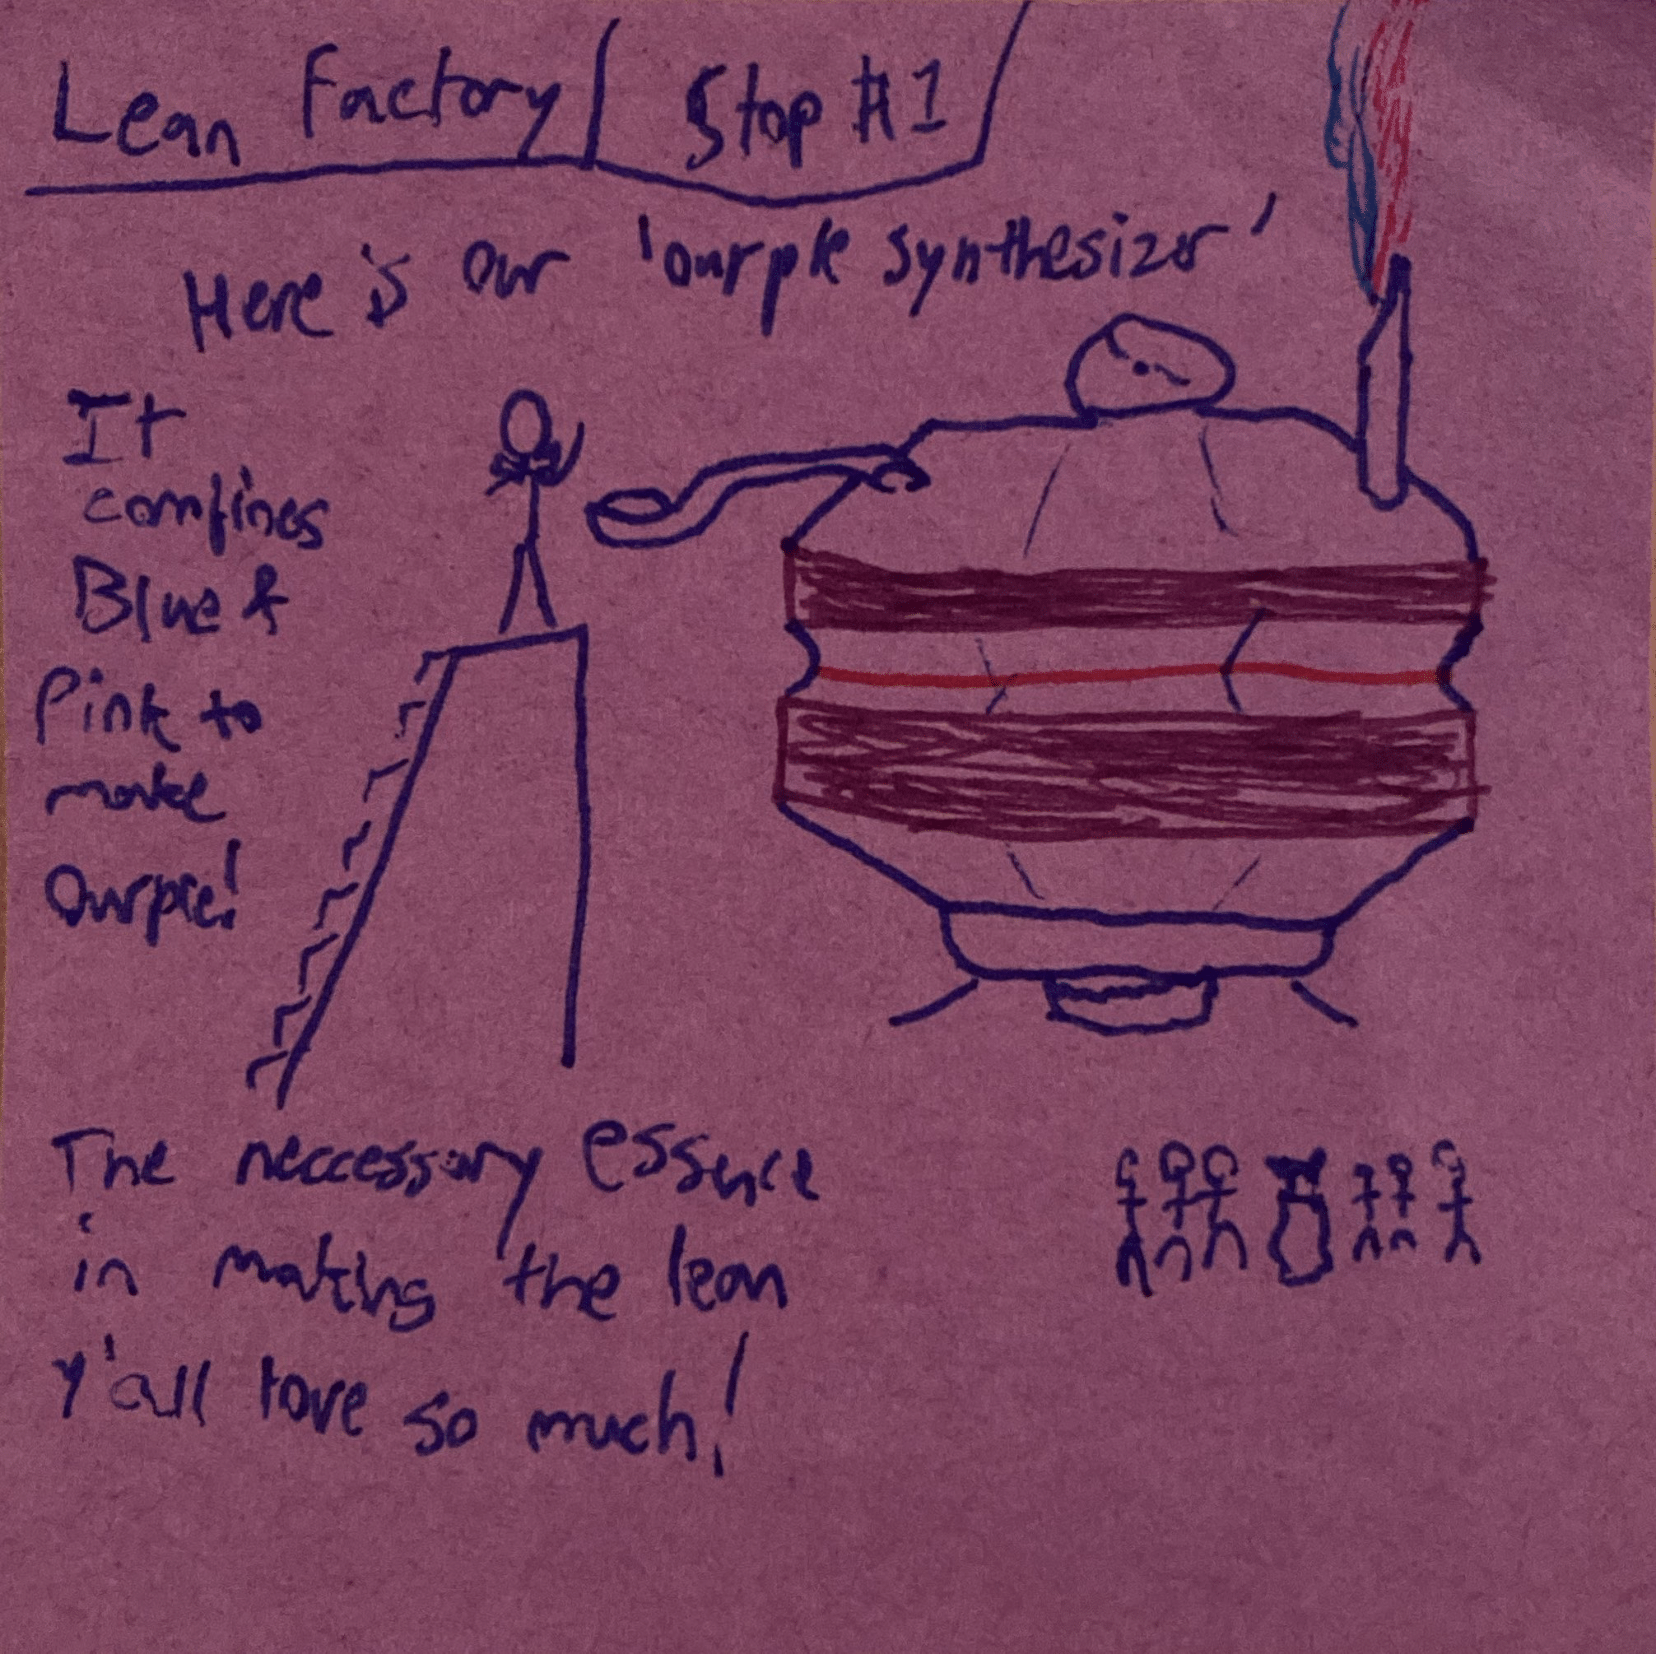 Lean Factory
Stop #1
Here's our 'ourple synthesizer'
It
comfines
Blue &
Pink to
make
Ourple!
The neccessary essence
in making the lean
y'all love so much!